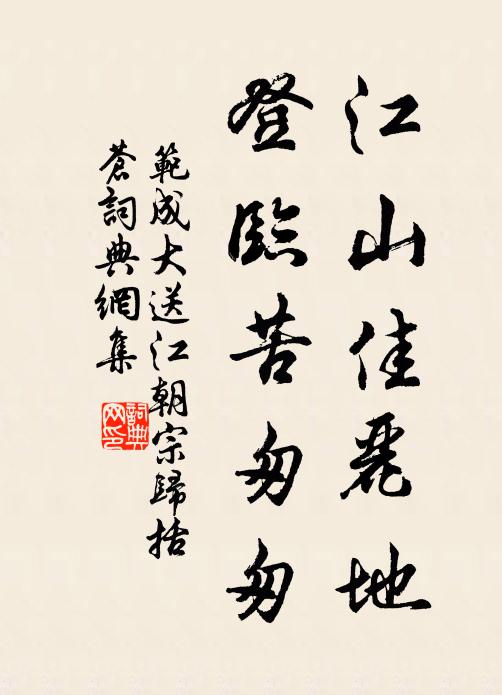 江山佳麗地
登臨苦匆匆
範成大送江朝宗歸括
蒼詞典網集
詞典网印